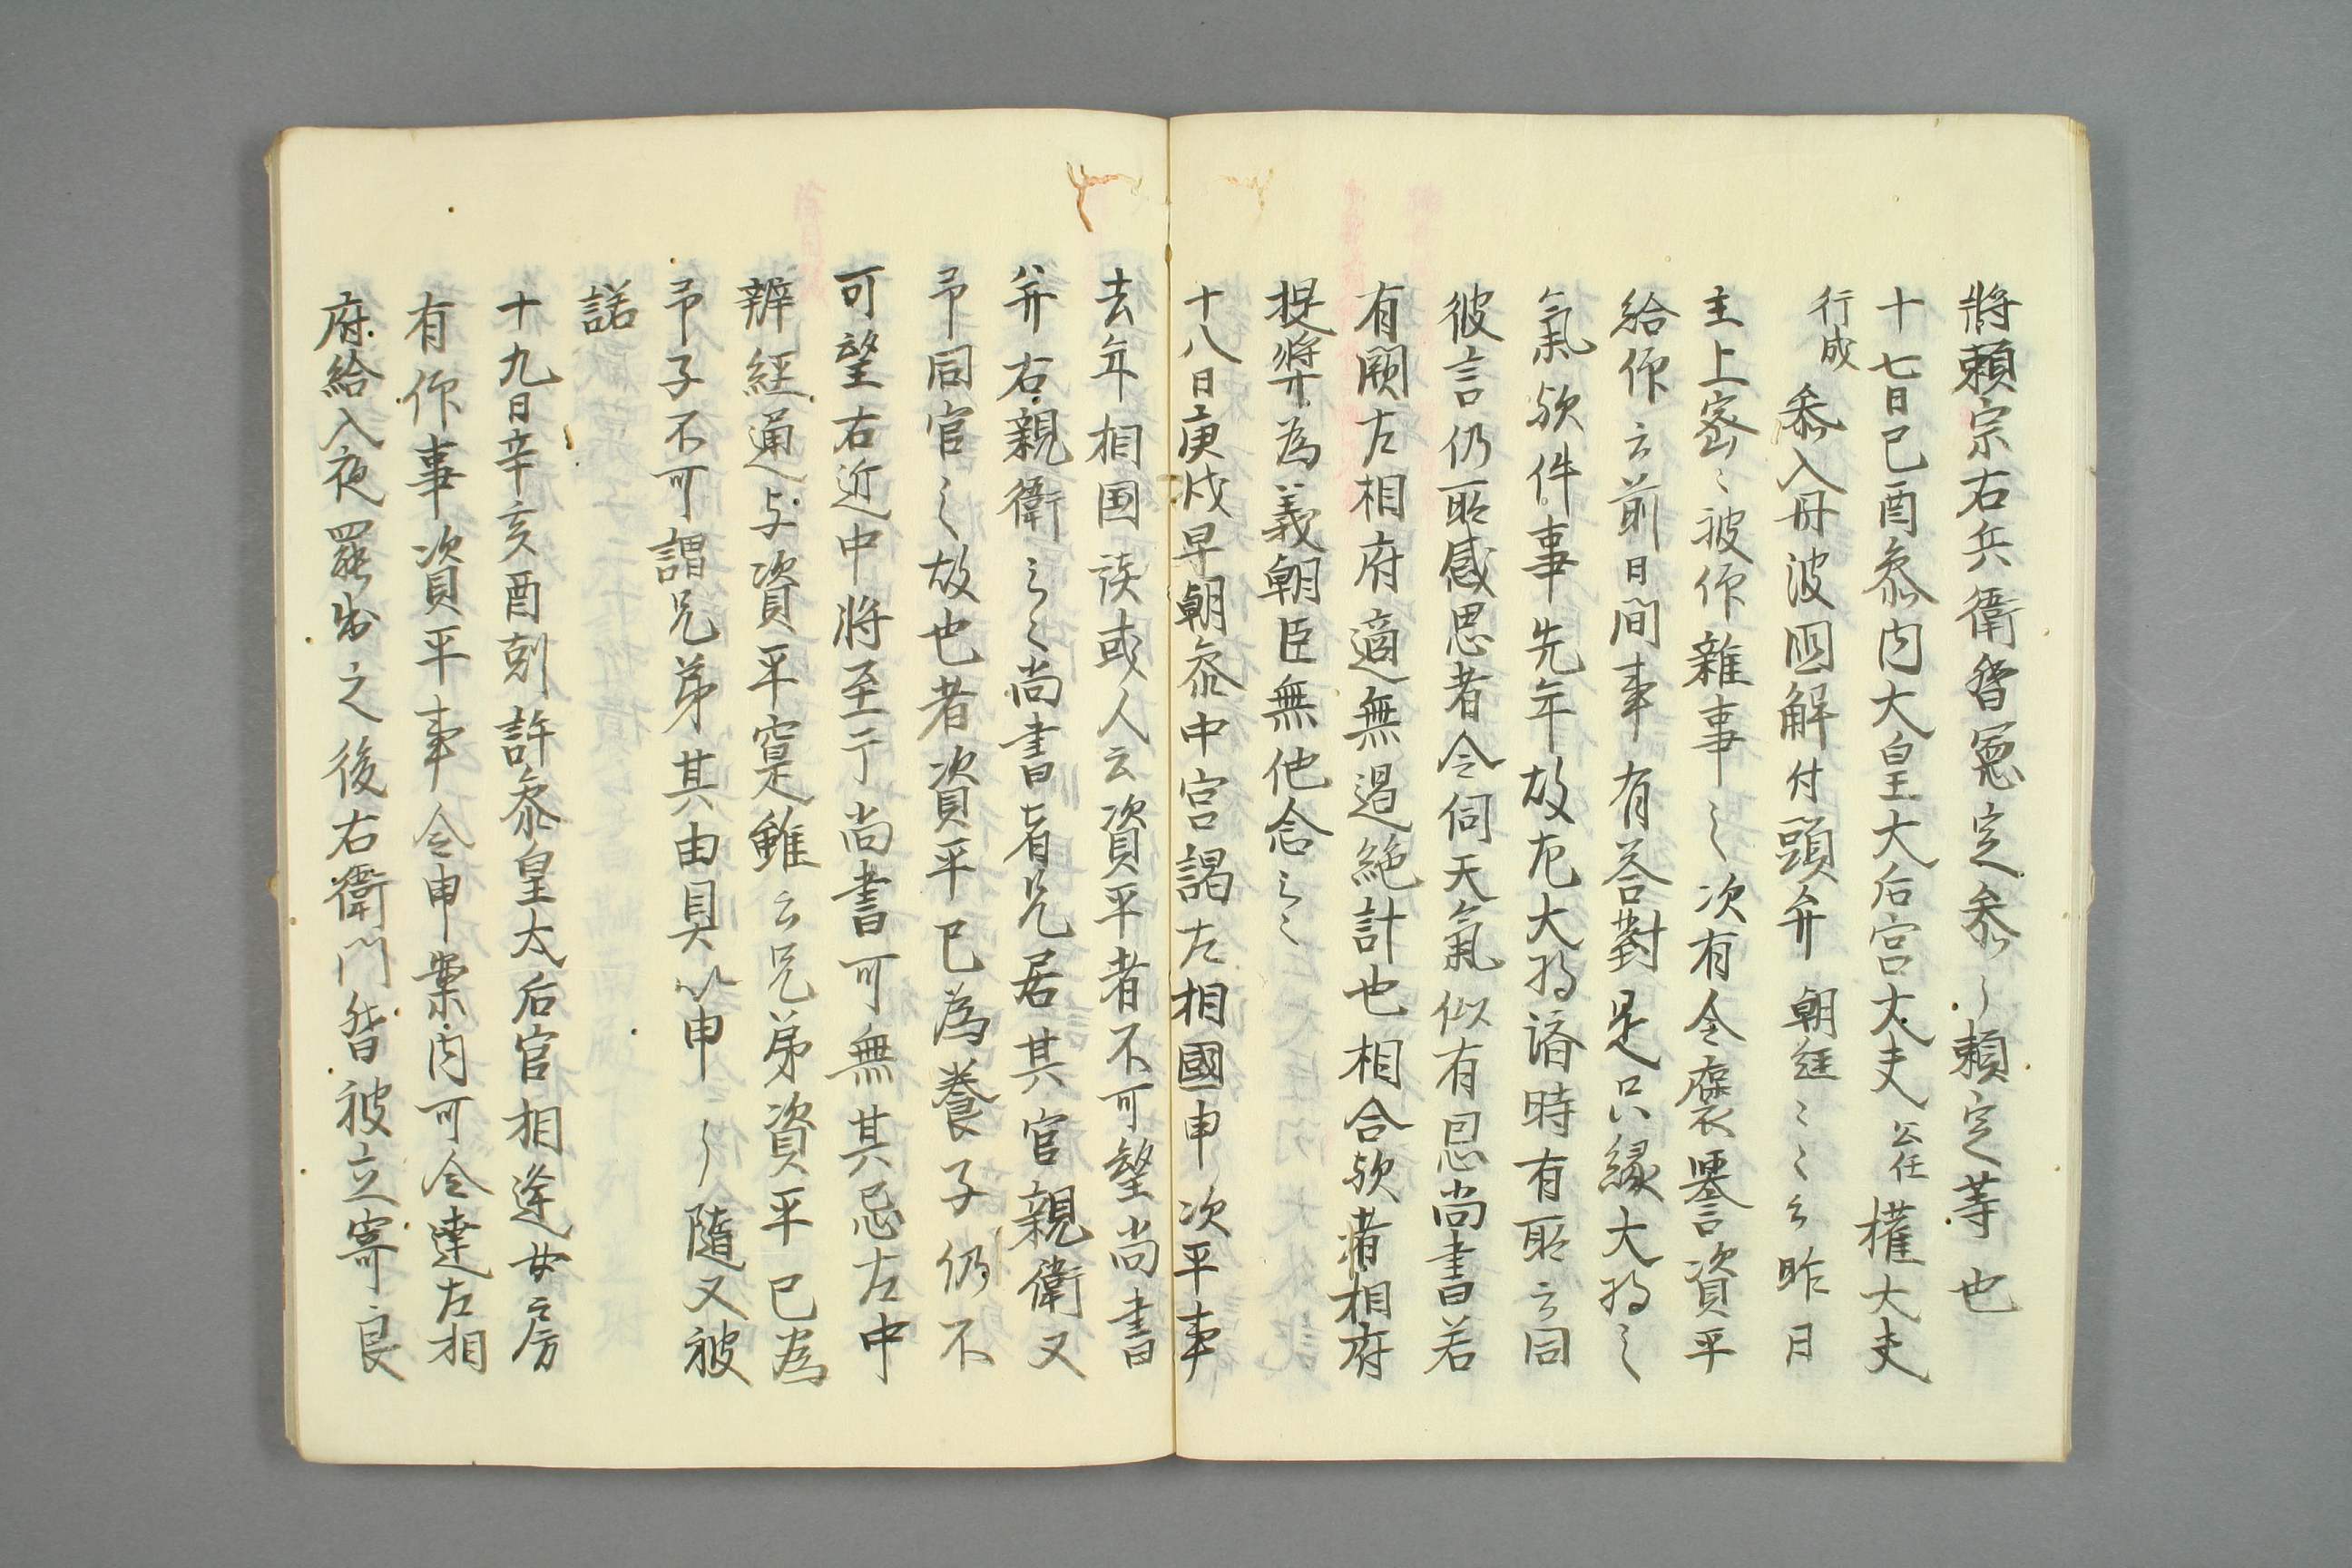 將頼宗右兵衛督憲定参〻頼定等也
十七日己酉参内大皇大后宮大夫公任權大夫
行成参入丹波国解付頭弁朝経〻〻云昨日
主上密〻被仰雜事〻次有令褒誉資平
給仰云前日間事有荅對是只縁大将之
氣欤件事先年故左大将済時有所云同
彼言仍所感思者令伺天氣似有恩尚書若
有闕左相府適無遏絶計也相合欤者相府
提奨為義朝臣無他念云〻
十八日庚戌早朝参中宮謁左相國申次平事
去年相国談或人云資平者不可望尚書
弁右親衛云〻尚書者兄居其官親衛又
弟同官之故也者資平已為養子仍不
可望右近中将至于尚書可無其忌左中
辨経通与資平寔雖云兄弟資平已為
弟子不可謂兄弟其由具以申〻隨又被
諾
十九日辛亥酉剋許参皇太后宮相逢女房
有仰事次資平事令申案内可令達左相
府給入夜罷出之後右衛門督被立寄良